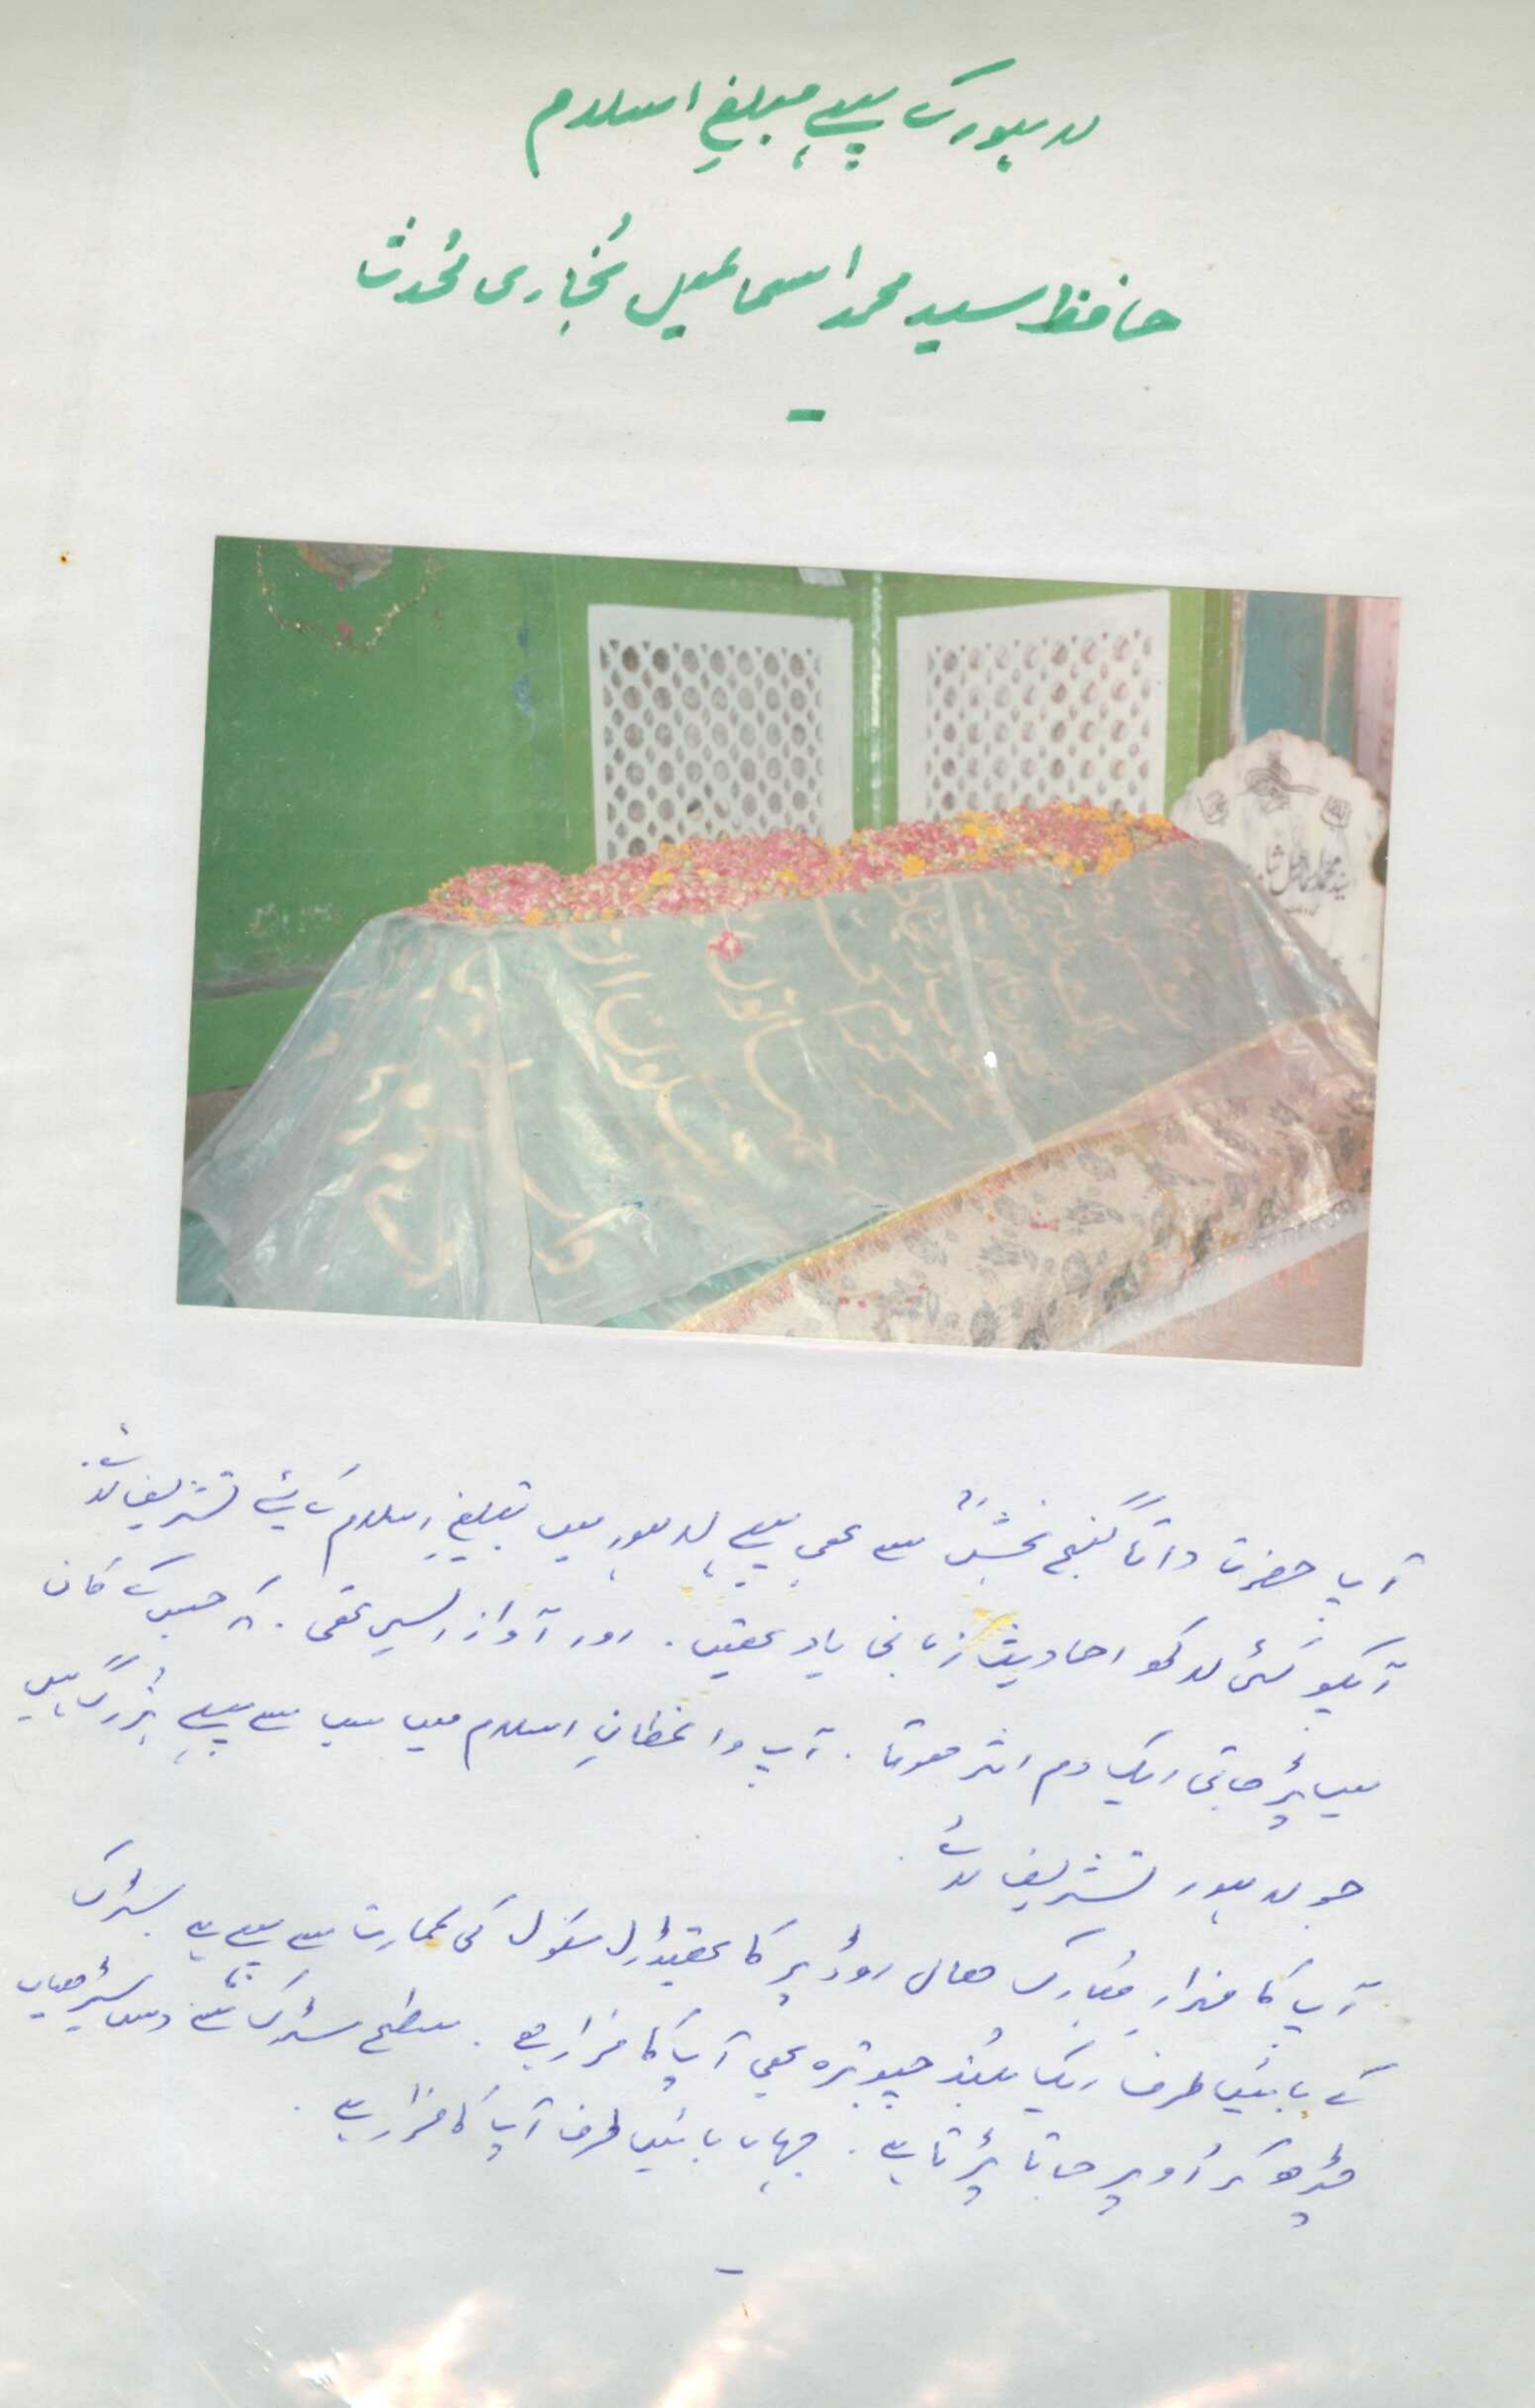 لاہور کے پہلے مبلغِ اسلام
حافظ سید محمد اسماعیل بُخاری مُحدث
سید محمد اسماعیل
آپ حضرت داتا گنج بخشؒ سے بھی پہلے لاہور میں تبلیغِ اسلام کے لئے تشریف لائے.
آپکو کئی لاکھ احادیث زبانی یاد تھیں. اور آواز ایسی تھی. کہ جس کے کان
میں پڑ جاتی ایک دم اثر ہوتا. آپ واعظانِ اسلام میں سب سے پہلے بُزرگ ہیں
جو لاہور تشریف لائے.
آپ کا مزار مُبارک ھال روڈ پر کا تھیڈرل سکول کی عمارت سے پہلے ہے سڑک
کے بائیں طرف ایک بلند چبوترہ آپ کا مزار ہے. سطح سڑک سے دس سیڑھیاں
چڑھ کر اُوپر جانا پڑتا ہے. جہاں بائیں طرف آپ کا مزار ہے.